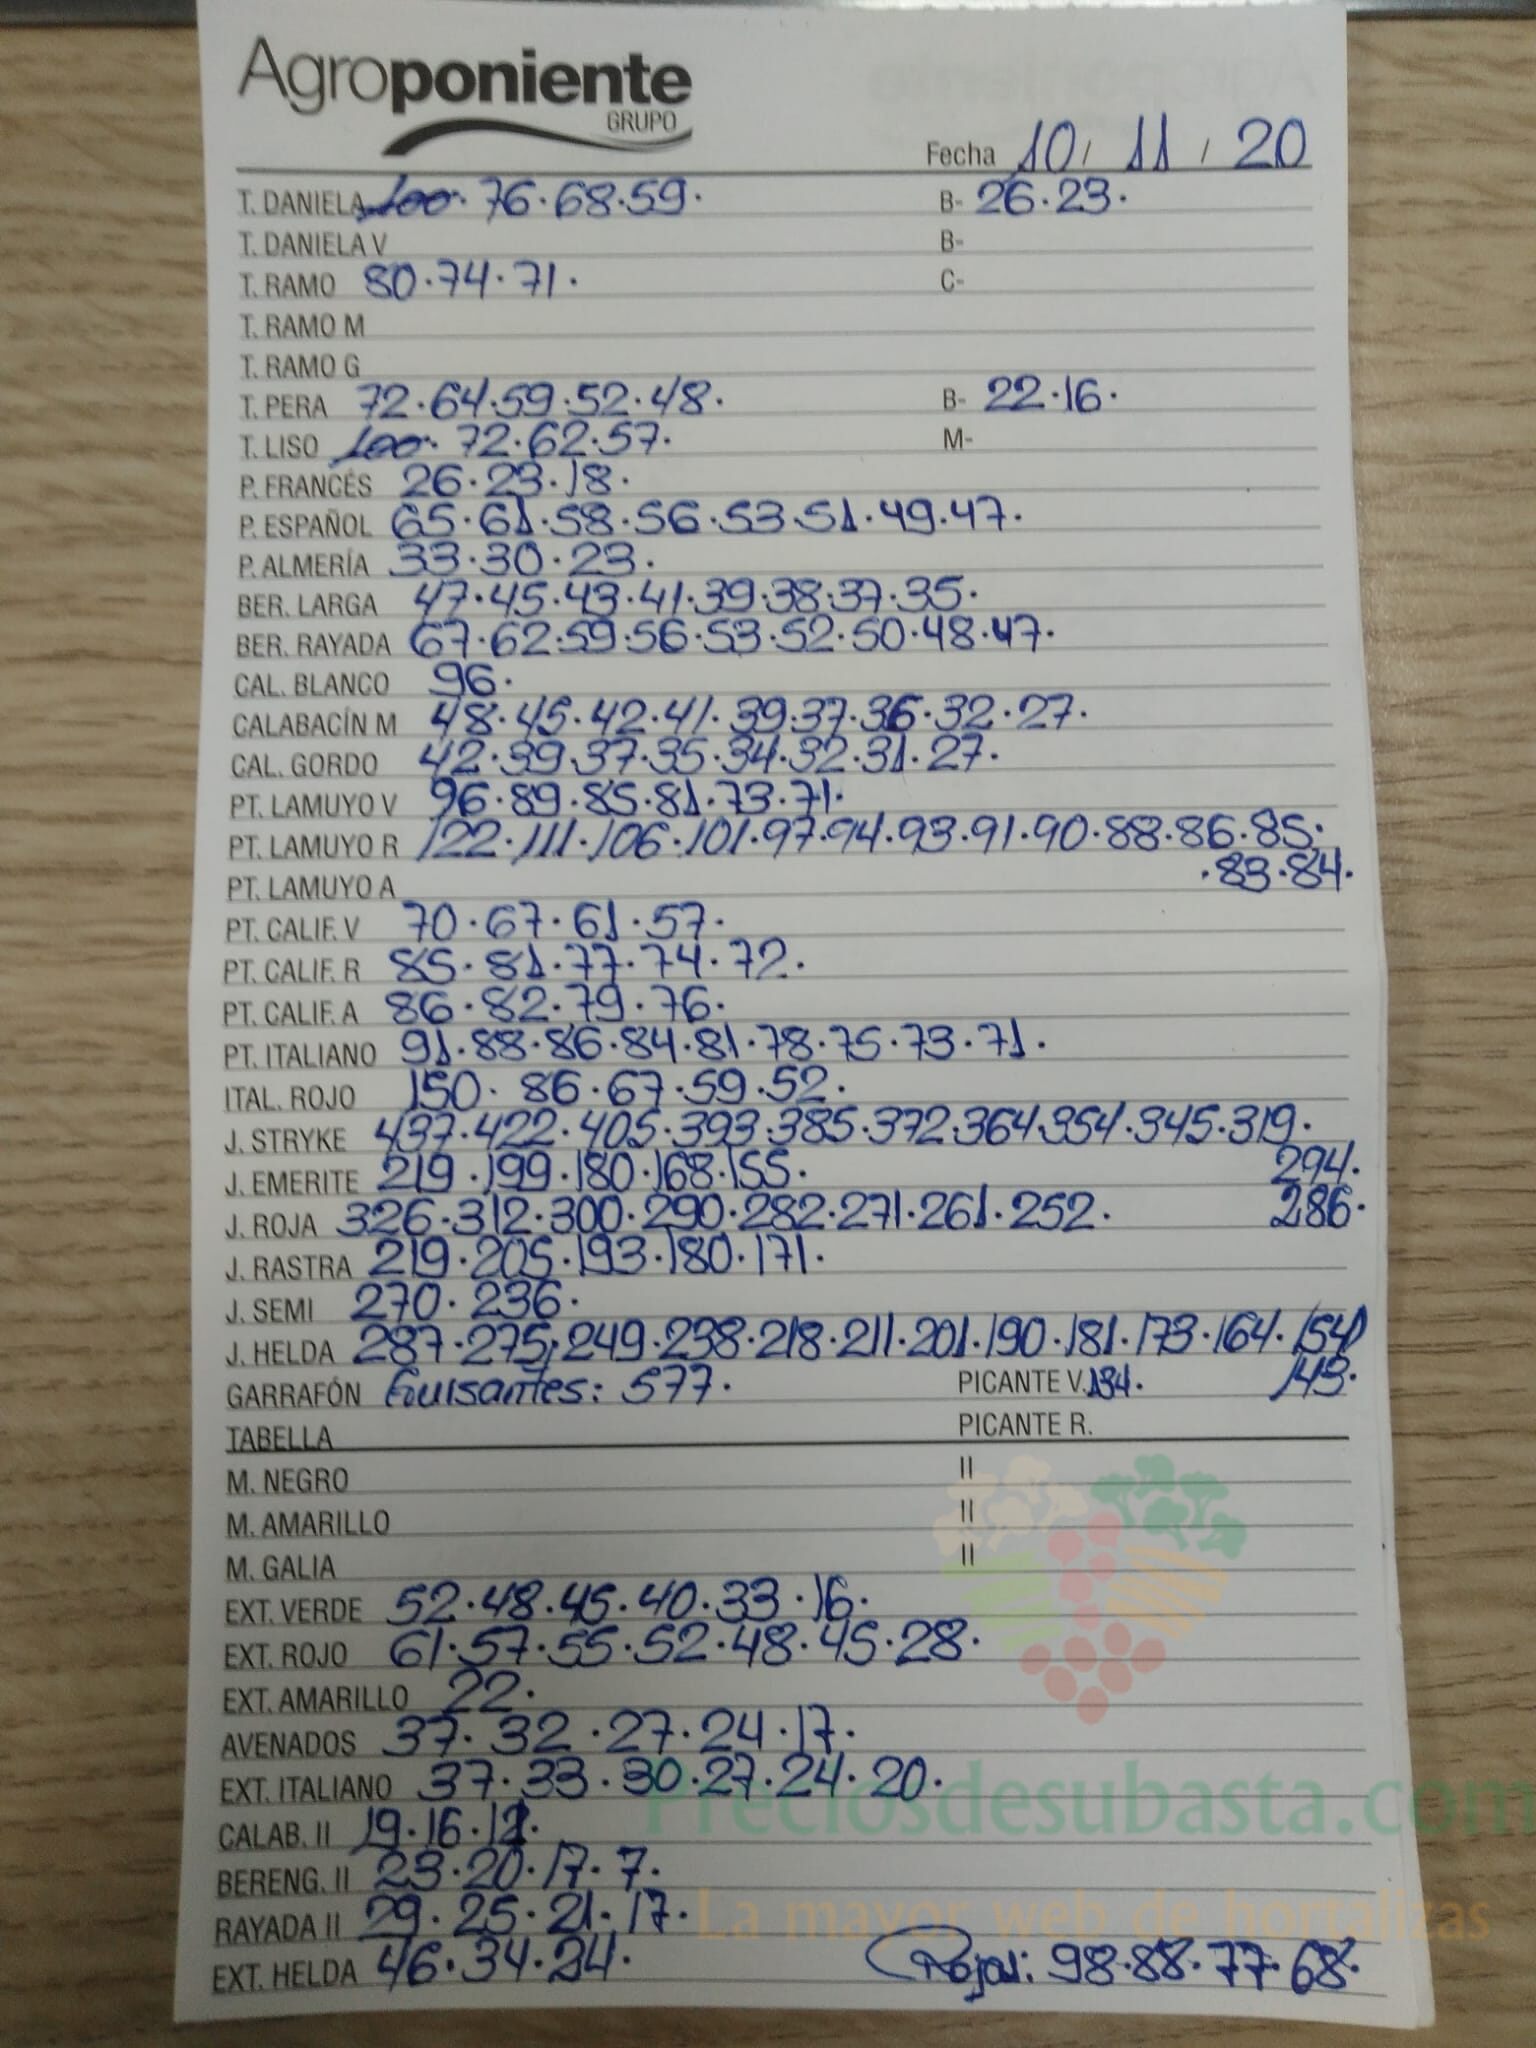 Agroponiente
GRUPO
Fecha 10 / 11 / 20
T. DANIELA 76·68·59· B- 26·23·
T. DANIELA V B-
T. RAMO 80·74·71· C-
T. RAMO M
T. RAMO G
T. PERA 72·64·59·52·48· B- 22·16·
T. LISO 72·62·57· M-
P. FRANCÉS 26·23·18·
P. ESPAÑOL 65·61·58·56·53·51·49·47·
P. ALMERÍA 33·30·23·
BER. LARGA 47·45·43·41·39·38·37·35·
BER. RAYADA 67·62·59·56·53·52·50·48·47·
CAL. BLANCO 96·
CALABACÍN M 48·45·42·41·39·37·36·32·27·
CAL. GORDO 42·39·37·35·34·32·31·27·
PT. LAMUYO V 96·89·85·81·73·71·
PT. LAMUYO R 122·111·106·101·97·94·93·91·90·88·86·85·
·83·84·
PT. LAMUYO A
PT. CALIF. V 70·67·61·57·
PT. CALIF. R 85·81·77·74·72·
PT. CALIF. A 86·82·79·76·
PT. ITALIANO 91·88·86·84·81·78·75·73·71·
ITAL. ROJO 150·86·67·59·52·
J. STRYKE 437·422·405·393·385·372·364·354·345·319·
294·
J. EMERITE 219·199·180·168·155·
286·
J. ROJA 326·312·300·290·282·271·261·252·
J. RASTRA 219·205·193·180·171·
J. SEMI 270·236·
J. HELDA 287·275·249·238·218·211·201·190·181·173·164·154
143·
GARRAFÓN Guisantes: 577· PICANTE V. 134·
TABELLA PICANTE R.
M. NEGRO II
M. AMARILLO II
M. GALIA II
EXT. VERDE 52·48·45·40·33·16·
EXT. ROJO 61·57·55·52·48·45·28·
EXT. AMARILLO 22·
AVENADOS 37·32·27·24·17·
EXT. ITALIANO 37·33·30·27·24·20·
Preciosdesubasta.com
CALAB. II 19·16·
BERENG. II 23·20·17·7·
RAYADA II 29·25·21·17·
La mayor web de hortalizas
EXT. HELDA 46·34·24· Rojas: 98·88·77·68·